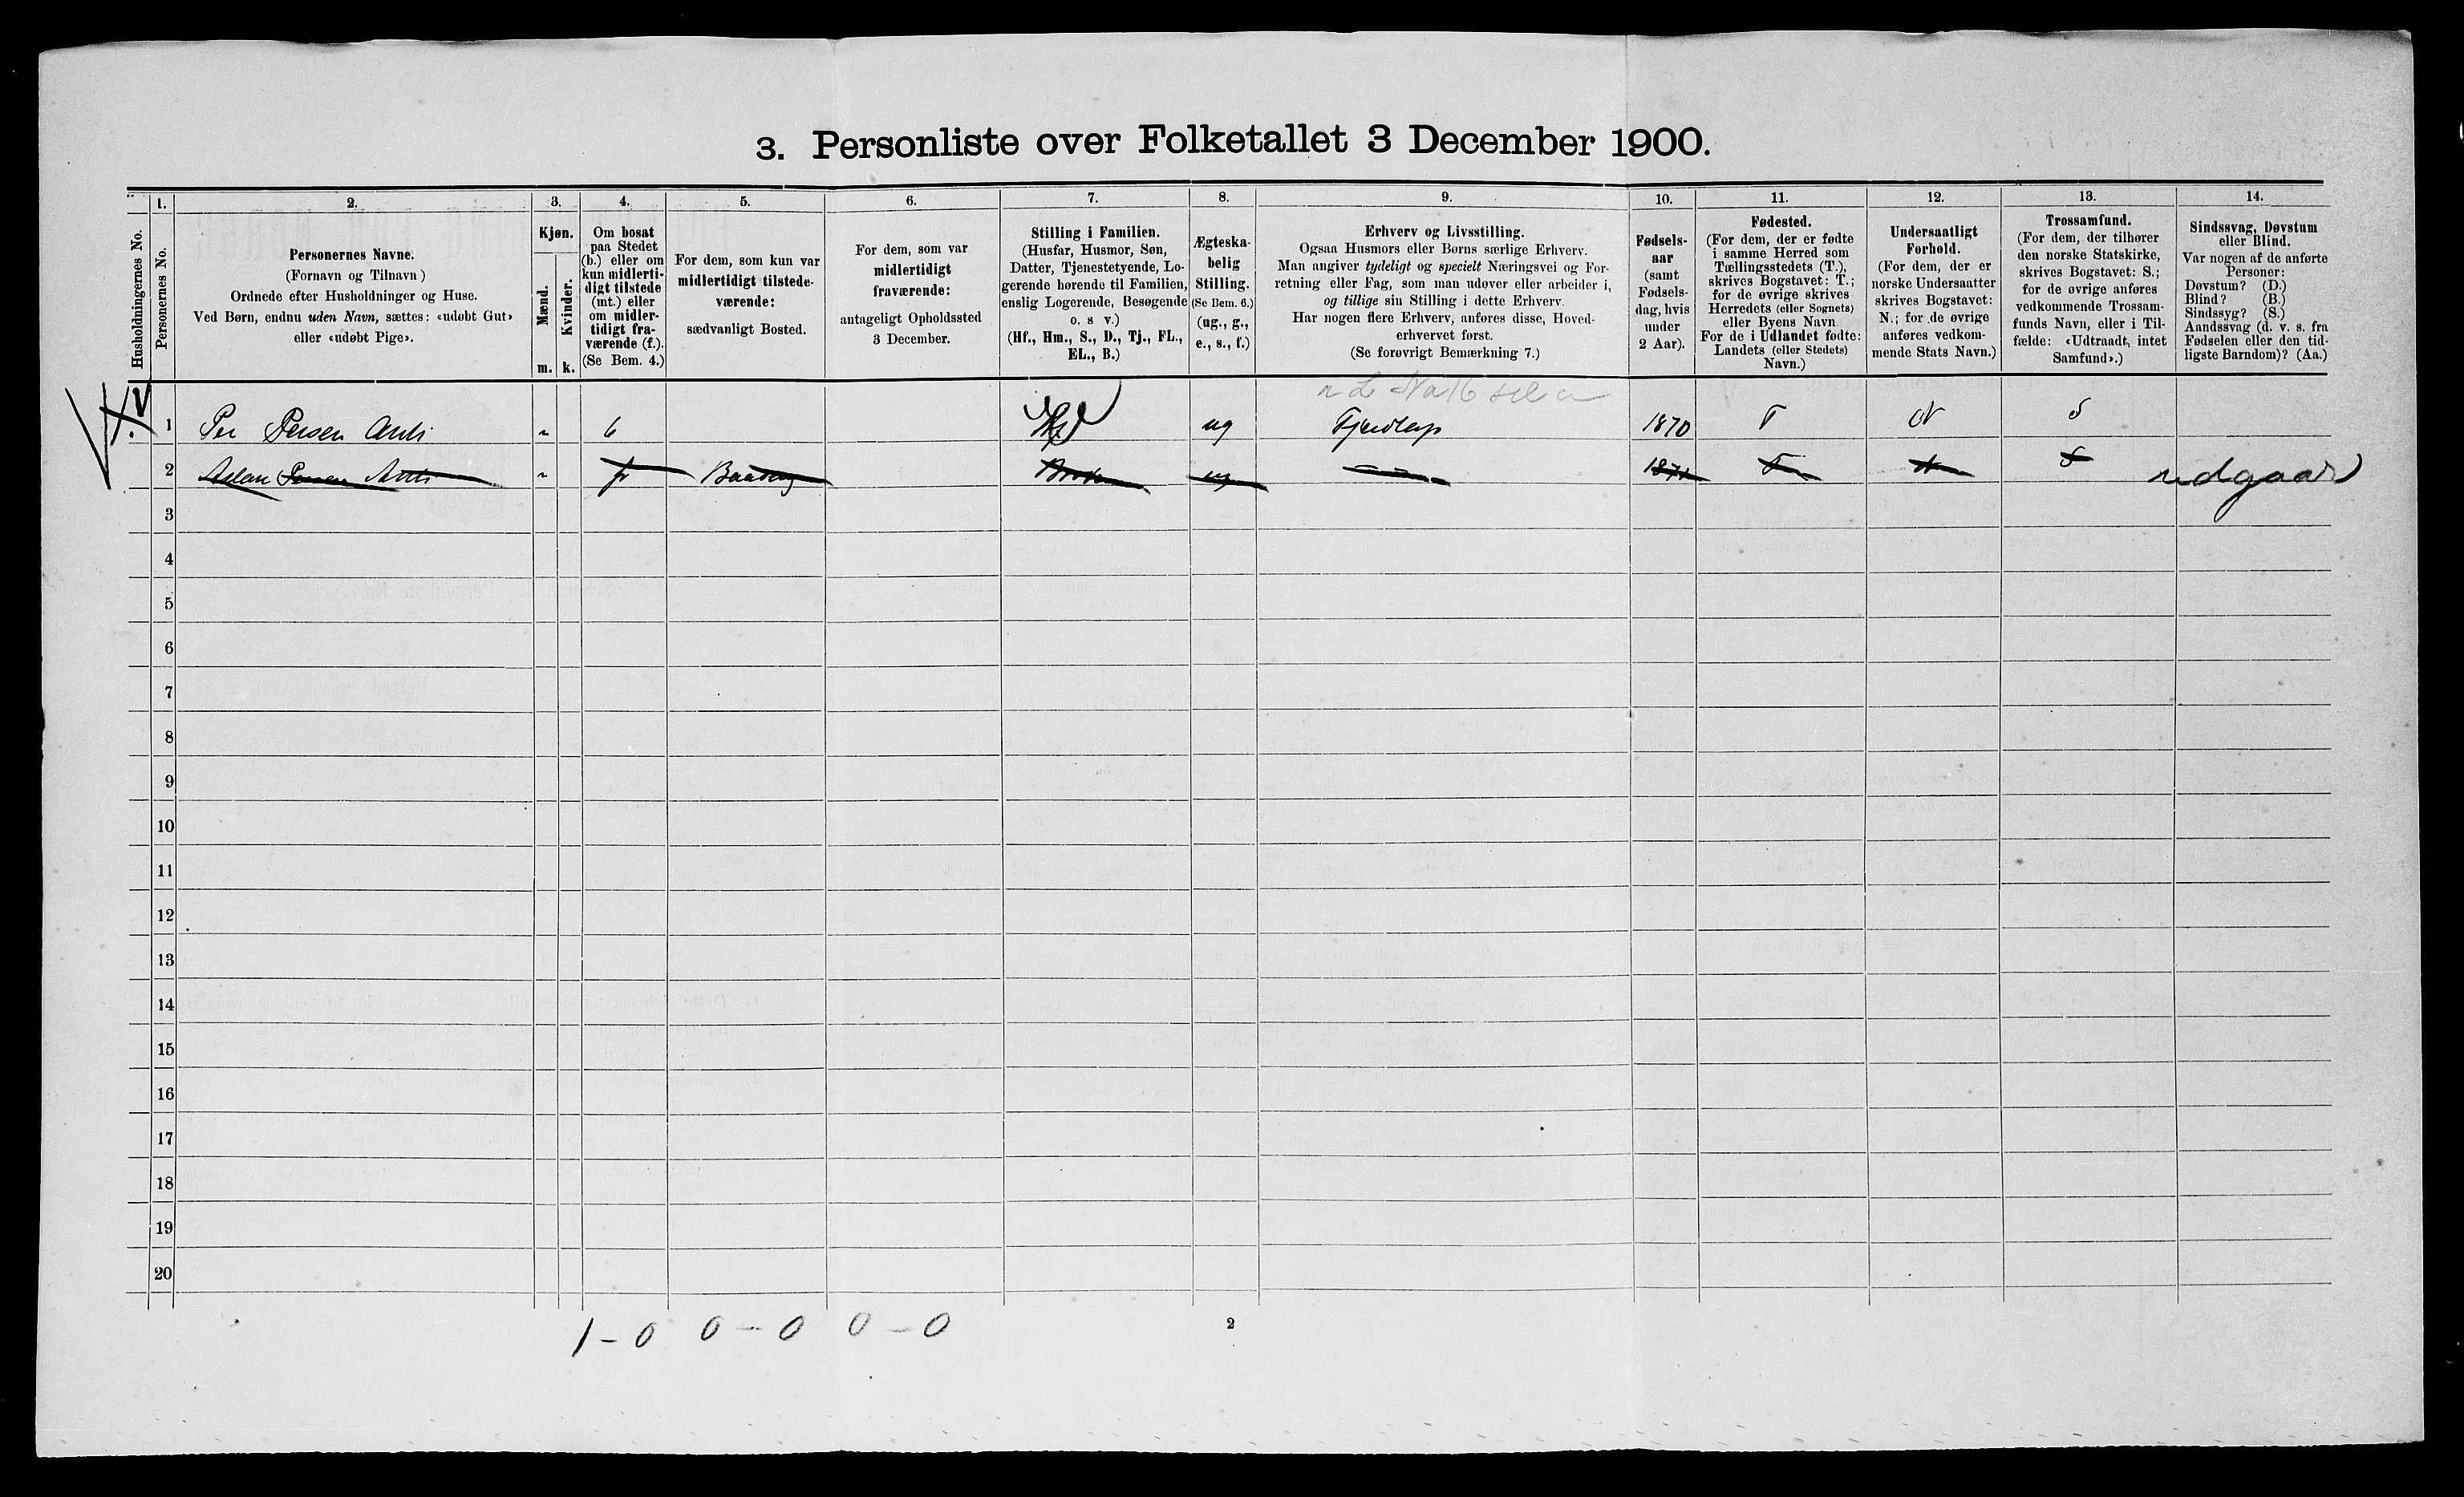 3. Personliste over Folketallet 3 December 1900.
1. 2. 3. 4. 5. 6. 7. 8. 9. 10. 11. 12. 13. 14.
Husholdningernes No.
Personernes No.
Personernes Navne.
(Fornavn og Tilnavn)
Ordnede efter Husholdninger og Huse.
Ved Børn, endnu uden Navn, sættes: «udøbt Gut»
eller «udøbt Pige».
Kjøn.
Mænd.
Kvinder.
m. k.
Om bosat
paa Stedet
(b.) eller om
kun midlerti-
digt tilstede
(mt.) eller
om midler-
tidigt fra-
værende (f.).
(Se Bem. 4.)
For dem, som kun var
midlertidigt tilstede-
værende:
sædvanligt Bosted.
For dem, som var
midlertidigt
fraværende:
antageligt Opholdssted
3 December.
Stilling i Familien.
(Husfar, Husmor, Søn,
Datter, Tjenestetyende, Lo-
gerende hørende til Familien,
enslig Logerende, Besøgende
o. s v.)
(Hf., Hm., S., D., Tj., FL.,
EL., B.)
Ægteska-
belig
Stilling.
(Se Bem. 6.)
(ug., g.,
e., s., f.)
Erhverv og Livsstilling.
Ogsaa Husmors eller Børns særlige Erhverv.
Man angiver tydeligt og specielt Næringsvei og For-
retning eller Fag, som man udøver eller arbeider i,
og tillige sin Stilling i dette Erhverv.
Har nogen flere Erhverv, anføres disse, Hoved-
erhvervet først.
(Se forøvrigt Bemærkning 7.)
Fødsels-
aar
(samt
Fødsels-
dag, hvis
under
2 Aar).
Fødested.
(For dem, der er fødte
i samme Herred som
Tællingsstedets (T.),
skrives Bogstavet: T.;
for de øvrige skrives
Herredets (eller Sognets)
eller Byens Navn
For de i Udlandet fødte:
Landets (eller Stedets)
Navn.)
Undersaatligt
Forhold.
(For dem, der er
norske Undersaatter
skrives Bogstavet:
N.; for de øvrige
anføres vedkom-
mende Stats Navn.)
Trossamfund.
(For dem, der tilhører
den norske Statskirke,
skrives Bogstavet: S.;
for de øvrige anføres
vedkommende Trossam-
funds Navn, eller i Til-
fælde: «Udtraadt, intet
Samfund».)
Sindssvag, Døvstum
eller Blind.
Var nogen af de anførte
Personer:
Døvstum? (D.)
Blind? (B.)
Sindssyg? (S.)
Aandssvag (d. v. s. fra
Fødselen eller den tid-
ligste Barndom)? (Aa.)
1 Per Persen Anti b Hf ug Fjeldlap 1870 T N S
2 Aslan Persen Anti f Broder ug 1871 T N S udgaar
3
4
5
6
7
8
9
10
11
12
13
14
15
16
17
18
19
20
1 - 0 0 - 0 0 - 0
2